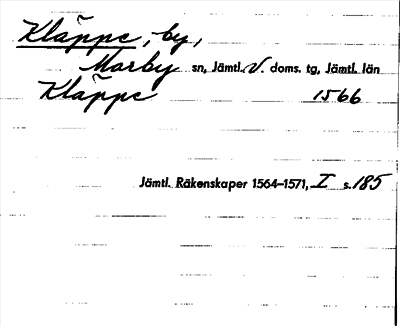 Kläppe, by,
Marby sn, Jämtl. V. doms. tg, Jämtl. län
Kläppe 1566
Jämtl. Räkenskaper 1564–1571, I s. 185